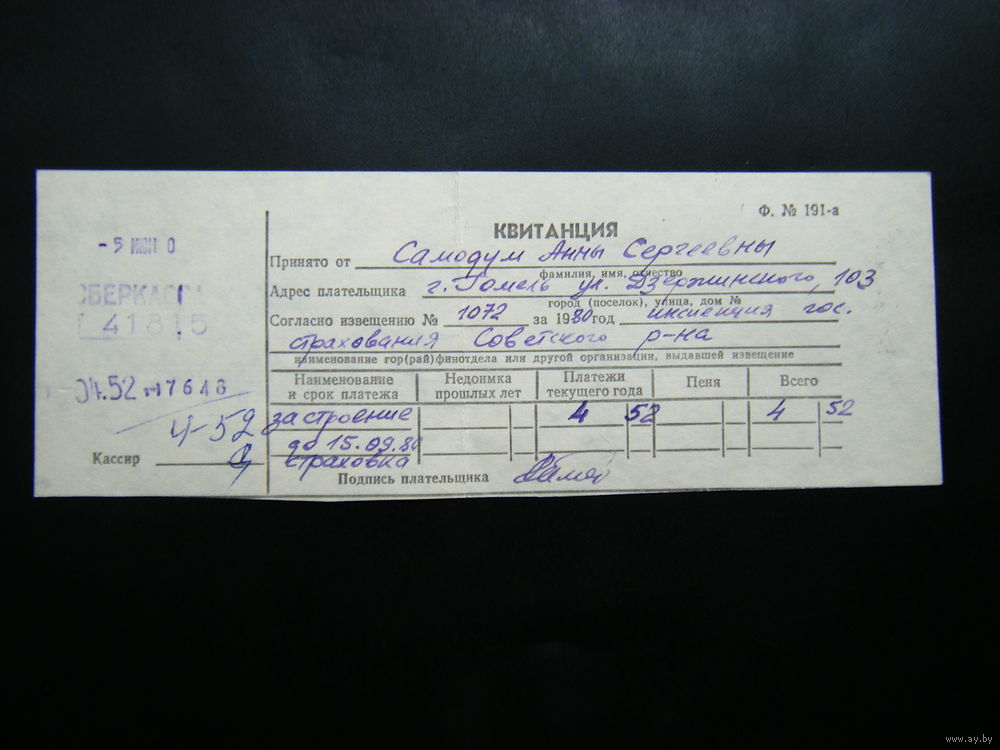 Ф. № 191-а
КВИТАНЦИЯ
- 5 ИЮН 0
Принято от Самодум Анны Сергеевны
фамилия, имя, отчество
Адрес плательщика г. Гомель ул. Дзержинского, 103
город (поселок), улица, дом №
СБЕРКАССА
41815
Согласно извещению № 1072 за 1980 год инспекция гос.
страхования Советского р-на
наименование гор(рай)финотдела или другой организации, выдавшей извещение
Наименование и срок платежа Недоимка прошлых лет Платежи текущего года Пеня Всего
04.52 7648
за строение 4 52 4 52
4-52
до 15.09.80
страховка
Кассир
Подпись плательщика
www.ay.by